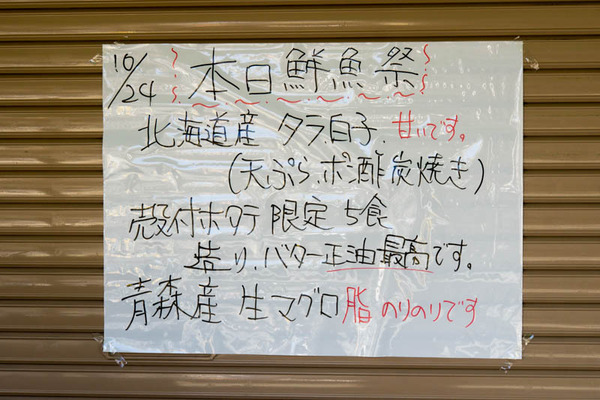 10/24 本日鮮魚祭
北海道産 タラ白子、甘いです。
(天ぷら、ポン酢、炭焼き)
殻付ホタテ 限定5食
造り、バター正油最高です。
青森産 生マグロ脂のりのりです